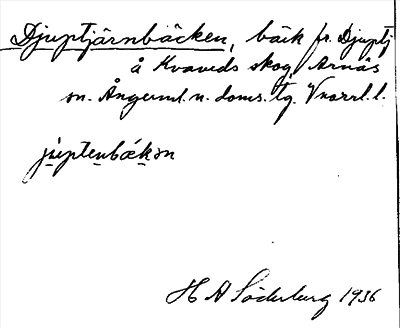 Djuptjärnbäcken, bäck fr. Djuptj
å Kvaveds skog, Arnäs
sn. Ångerml. n. doms. tg. Vnorrl. l.
juptenbäkən
H A Söderberg 1936